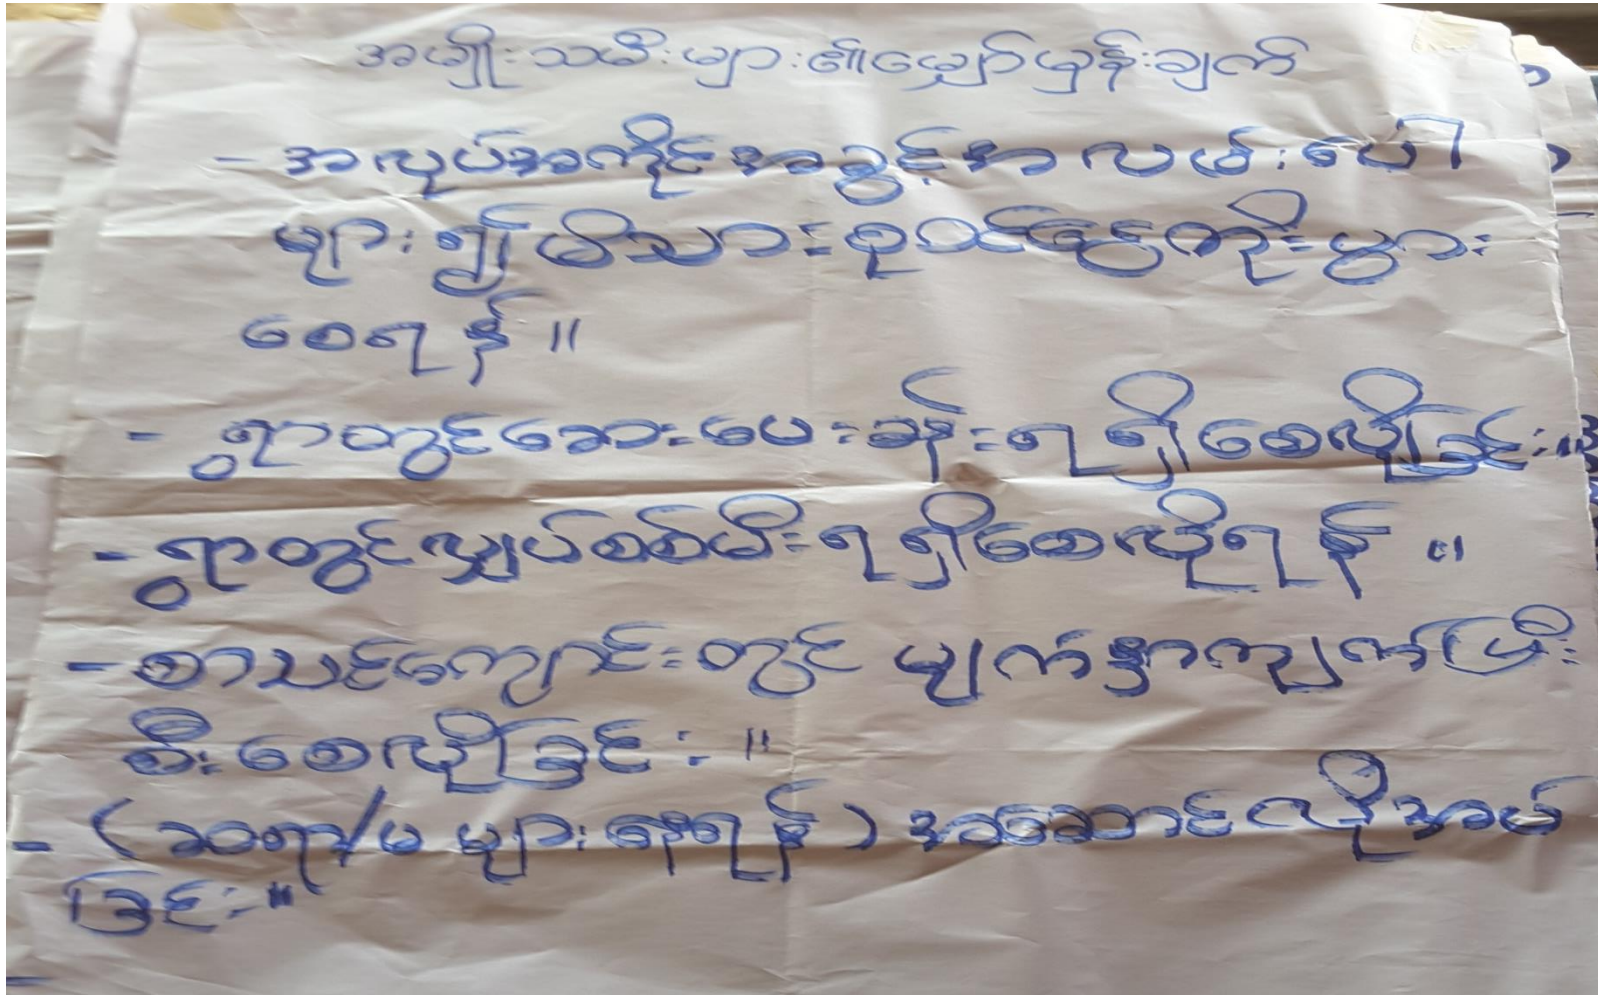 အမျိုးသမီးများ၏မျှော်မှန်းချက်
- အလုပ်အကိုင်အခွင့်အလမ်းပေါ
များ၍မိသားစုဝင်ငွေတိုးပွား
စေရန်။
- ရွာတွင်ဆေးပေးခန်းရရှိစေလိုခြင်း။
- ရွာတွင်လျှပ်စစ်မီးရရှိစေလိုရန်။
- စာသင်ကျောင်းတွင် မျက်နှာကျက်ပြီး
စီးစေလိုခြင်း။
- (ဆရာ/မ များနေရန်) အဆောင်လိုအပ်
ခြင်း။